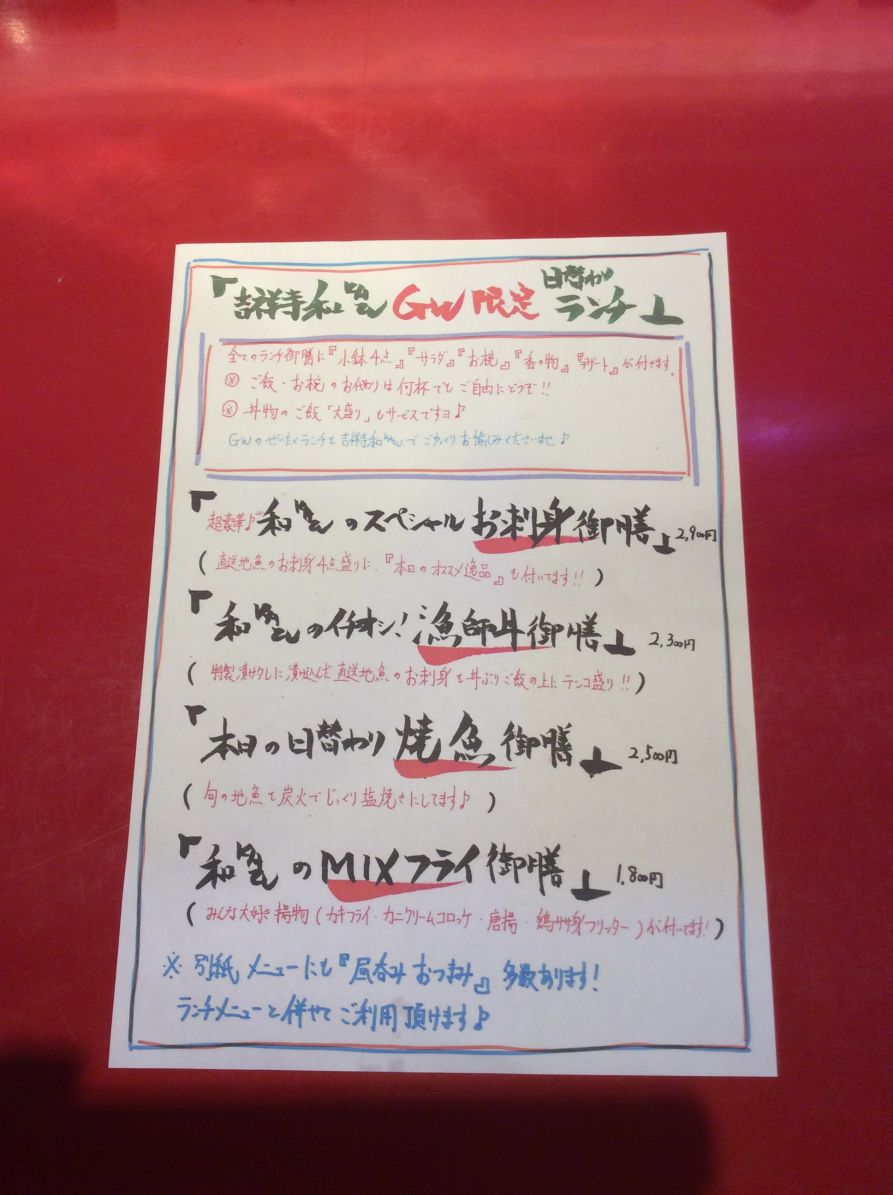 『吉祥寺 和 GW 限定 日替わり ランチ』
全てのランチ御膳に『小鉢4点』『サラダ』『お椀』『香の物』『デザート』が付きます。
※ ご飯・お椀のお代わりは何杯でもご自由にどうぞ!!
※ 丼物のご飯「大盛り」もサービスですヨ♪
GWのぜいたくランチを吉祥寺和でごゆっくりお愉しみくださいませ♪
『超豪華♪和のスペシャルお刺身御膳』2,900円
(直送地魚のお刺身4点盛りに、『本日のオススメ逸品』も付いてます!!)
『和のイチオシ!漁師丼御膳』2,300円
(特製漬けタレに漬け込んだ直送地魚のお刺身を丼ぶりご飯の上にテンコ盛り!!)
『本日の日替わり焼魚御膳』2,500円
(旬の地魚を炭火でじっくり塩焼きにしてます♪)
『和のMIXフライ御膳』1,800円
(みんな大好き揚物(カキフライ・カニクリームコロッケ・唐揚・鶏ササ身フリッター)が付いてます!)
※別紙メニューにも『昼呑みおつまみ』多数あります!
ランチメニューと併せてご利用頂けます♪